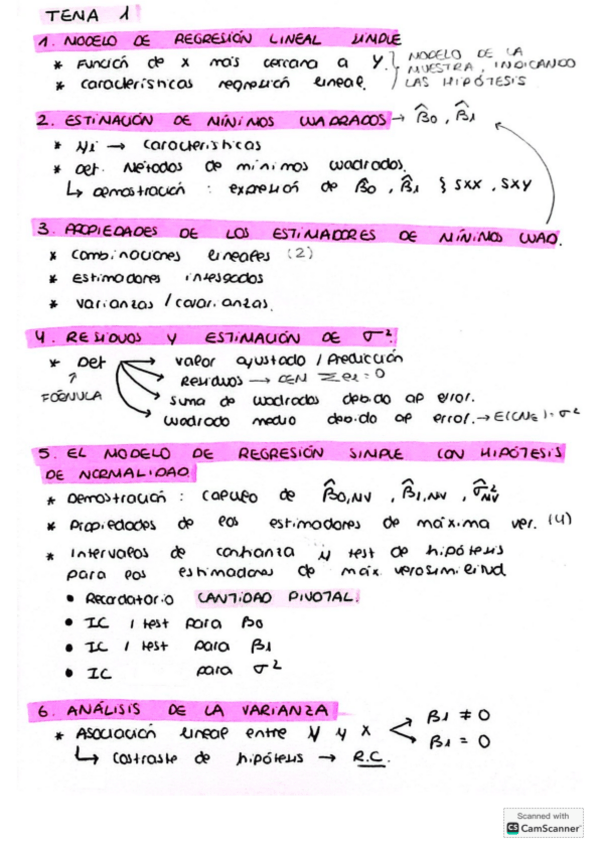 TEMA 1
1. MODELO DE REGRESIÓN LINEAL SIMPLE
* Función de x más cercana a y. } MODELO DE LA
* características regresión lineal. MUESTRA, INDICANDO
LAS HIPÓTESIS
2. ESTIMACIÓN DE MÍNIMOS CUADRADOS → β̂0, β̂1
* Yi → características
* Def. Métodos de mínimos cuadrados.
↳ Demostración : expresión de β̂0, β̂1 { SXX, SXY
3. PROPIEDADES DE LOS ESTIMADORES DE MÍNIMOS CUAD.
* combinaciones lineales (2)
* Estimadores insesgados
* varianzas / covarianzas.
4. RESIDUOS Y ESTIMACIÓN DE σ².
* Def → valor ajustado / Predicción
FÓRMULA → Residuos → DEM Σei = 0
→ Suma de cuadrados debido al error.
→ cuadrado medio debido al error. → E(CME) = σ²
5. EL MODELO DE REGRESIÓN SIMPLE CON HIPÓTESIS
DE NORMALIDAD.
* Demostración : cálculo de β̂0,MV , β̂1,MV , σ̂²MV
* Propiedades de los estimadores de máxima ver. (4)
* Intervalos de confianza y test de hipótesis
para los estimadores de máx. verosimilitud
• Recordatorio CANTIDAD PIVOTAL.
• IC / test para β0
• IC / test para β1
• IC para σ²
6. ANÁLISIS DE LA VARIANZA
* Asociación lineal entre Y y X < β1 ≠ 0
β1 = 0
↳ Costraste de hipótesis → R.C.
Scanned with
CS CamScanner